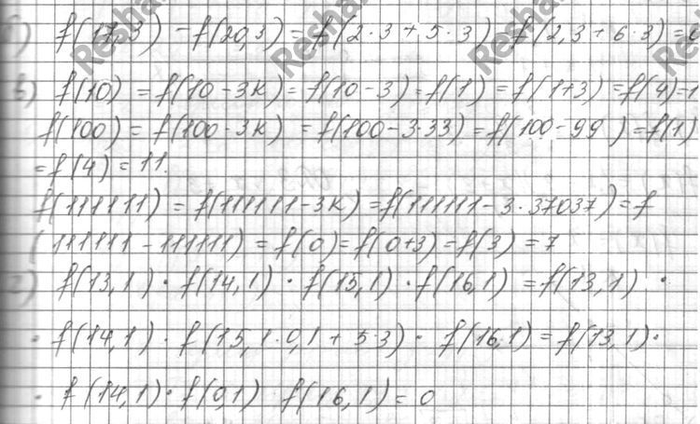 б) f(17,3) - f(20,3) = f(2·3 + 5·3) f(2,3 + 6·3) = 0
в) f(10) = f(10-3к) = f(10-3) = f(1) = f(1+3) = f(4) = 1
f(100) = f(100-3к) = f(100-3·33) = f(100-99) = f(1)
= f(4) = 11.
f(111111) = f(111111-3к) = f(111111-3·37037) = f
(111111-111111) = f(0) = f(0+3) = f(3) = 7
г) f(13,1) · f(14,1) · f(15,1) · f(16,1) = f(13,1) ·
· f(14,1) · f(15,1·0,1 + 5·3) · f(16,1) = f(13,1) ·
· f(14,1) · f(0,1) f(16,1) = 0